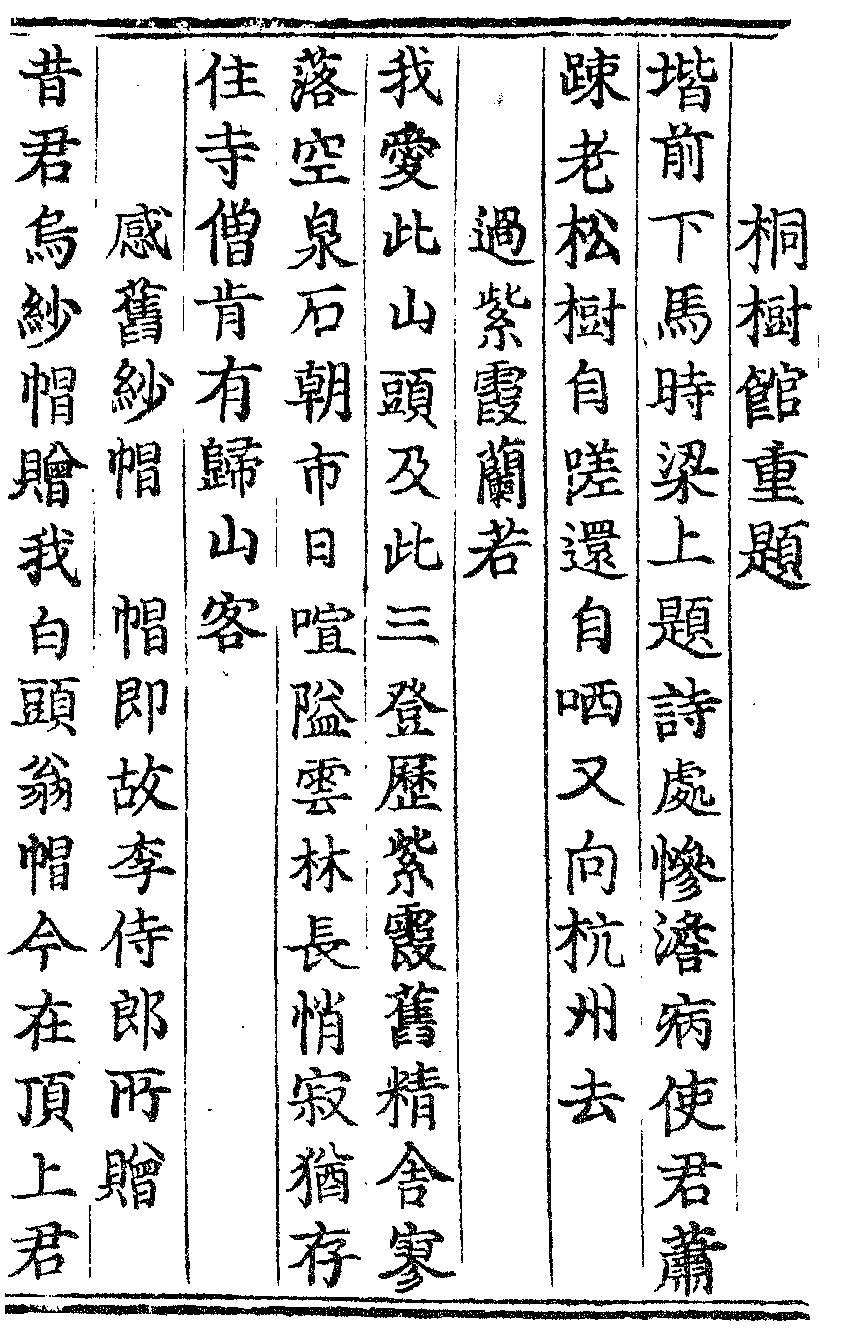 桐樹館重題
堦前下馬時梁上題詩處慘澹病使君蕭
踈老松樹自嗟還自哂又向杭州去
過紫霞蘭若
我愛此山頭及此三登歷紫霞舊精舍寥
落空泉石朝市日喧隘雲林長悄寂猶存
住寺僧肯有歸山客
感舊紗帽 帽即故李侍郎所贈
昔君烏紗帽贈我白頭翁帽今在頂上君